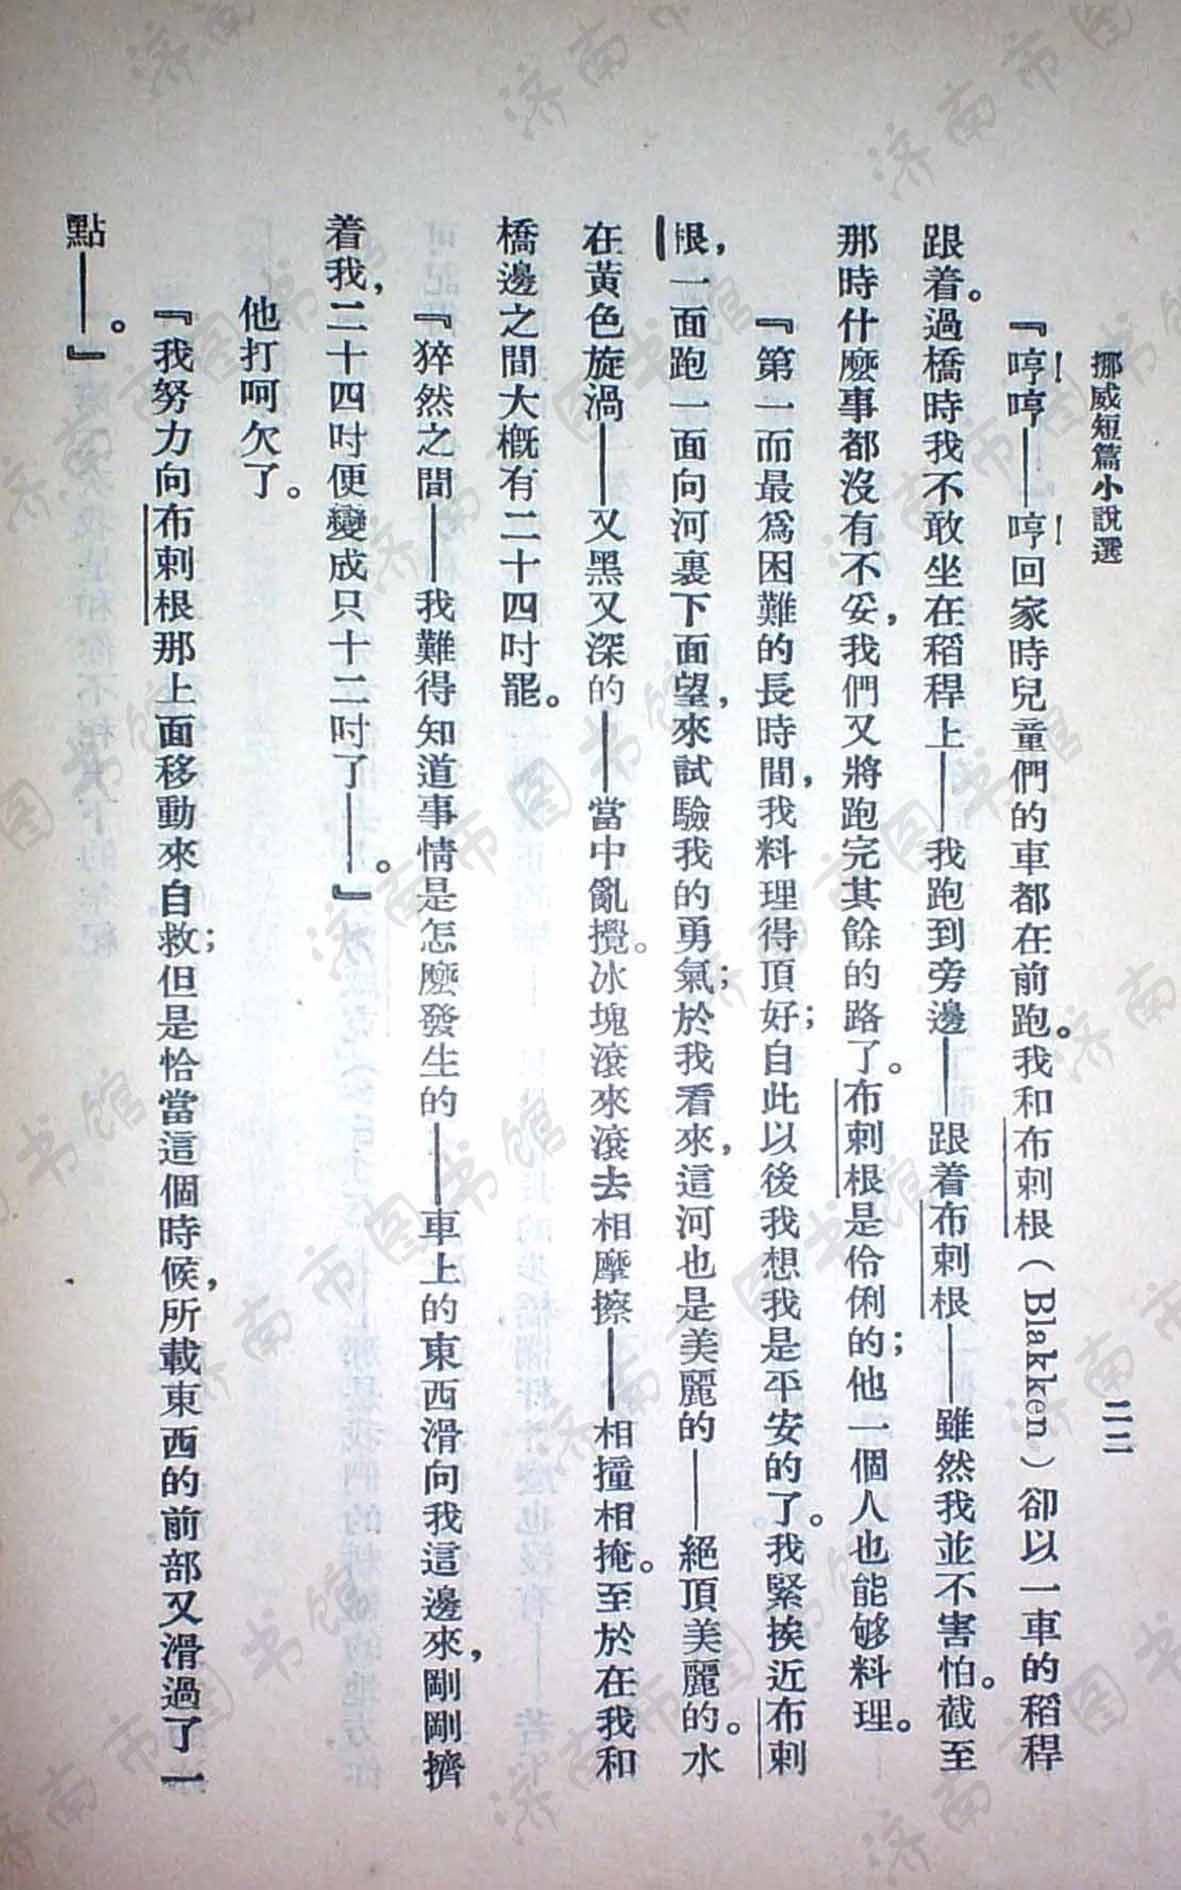 挪威短篇小說選
二二
『哼哼！——哼！回家時兒童們的車都在前跑。我和布剌根（Blakken）卻以一車的稻稈
跟着。過橋時我不敢坐在稻稈上——我跑到旁邊——跟着布剌根——雖然我並不害怕。截至
那時什麼事都沒有不妥，我們又將跑完其餘的路了。布剌根是伶俐的；他一個人也能够料理。
『第一而最爲困難的長時間，我料理得頂好；自此以後我想我是平安的了。我緊挨近布剌
根，一面跑一面向河裏下面望，來試驗我的勇氣；於我看來，這河也是美麗的——絕頂美麗的。水
在黃色旋渦——又黑又深的——當中亂攪。冰塊滾來滾去相摩擦——相撞相掩。至於在我和
橋邊之間大概有二十四吋罷。
『猝然之間——我難得知道事情是怎麼發生的——車上的東西滑向我這邊來，剛剛擠
着我，二十四吋便變成只十二吋了——。』
他打呵欠了。
『我努力向布剌根那上面移動來自救；但是恰當這個時候，所載東西的前部又滑過了一
點——。』
济南市图书馆